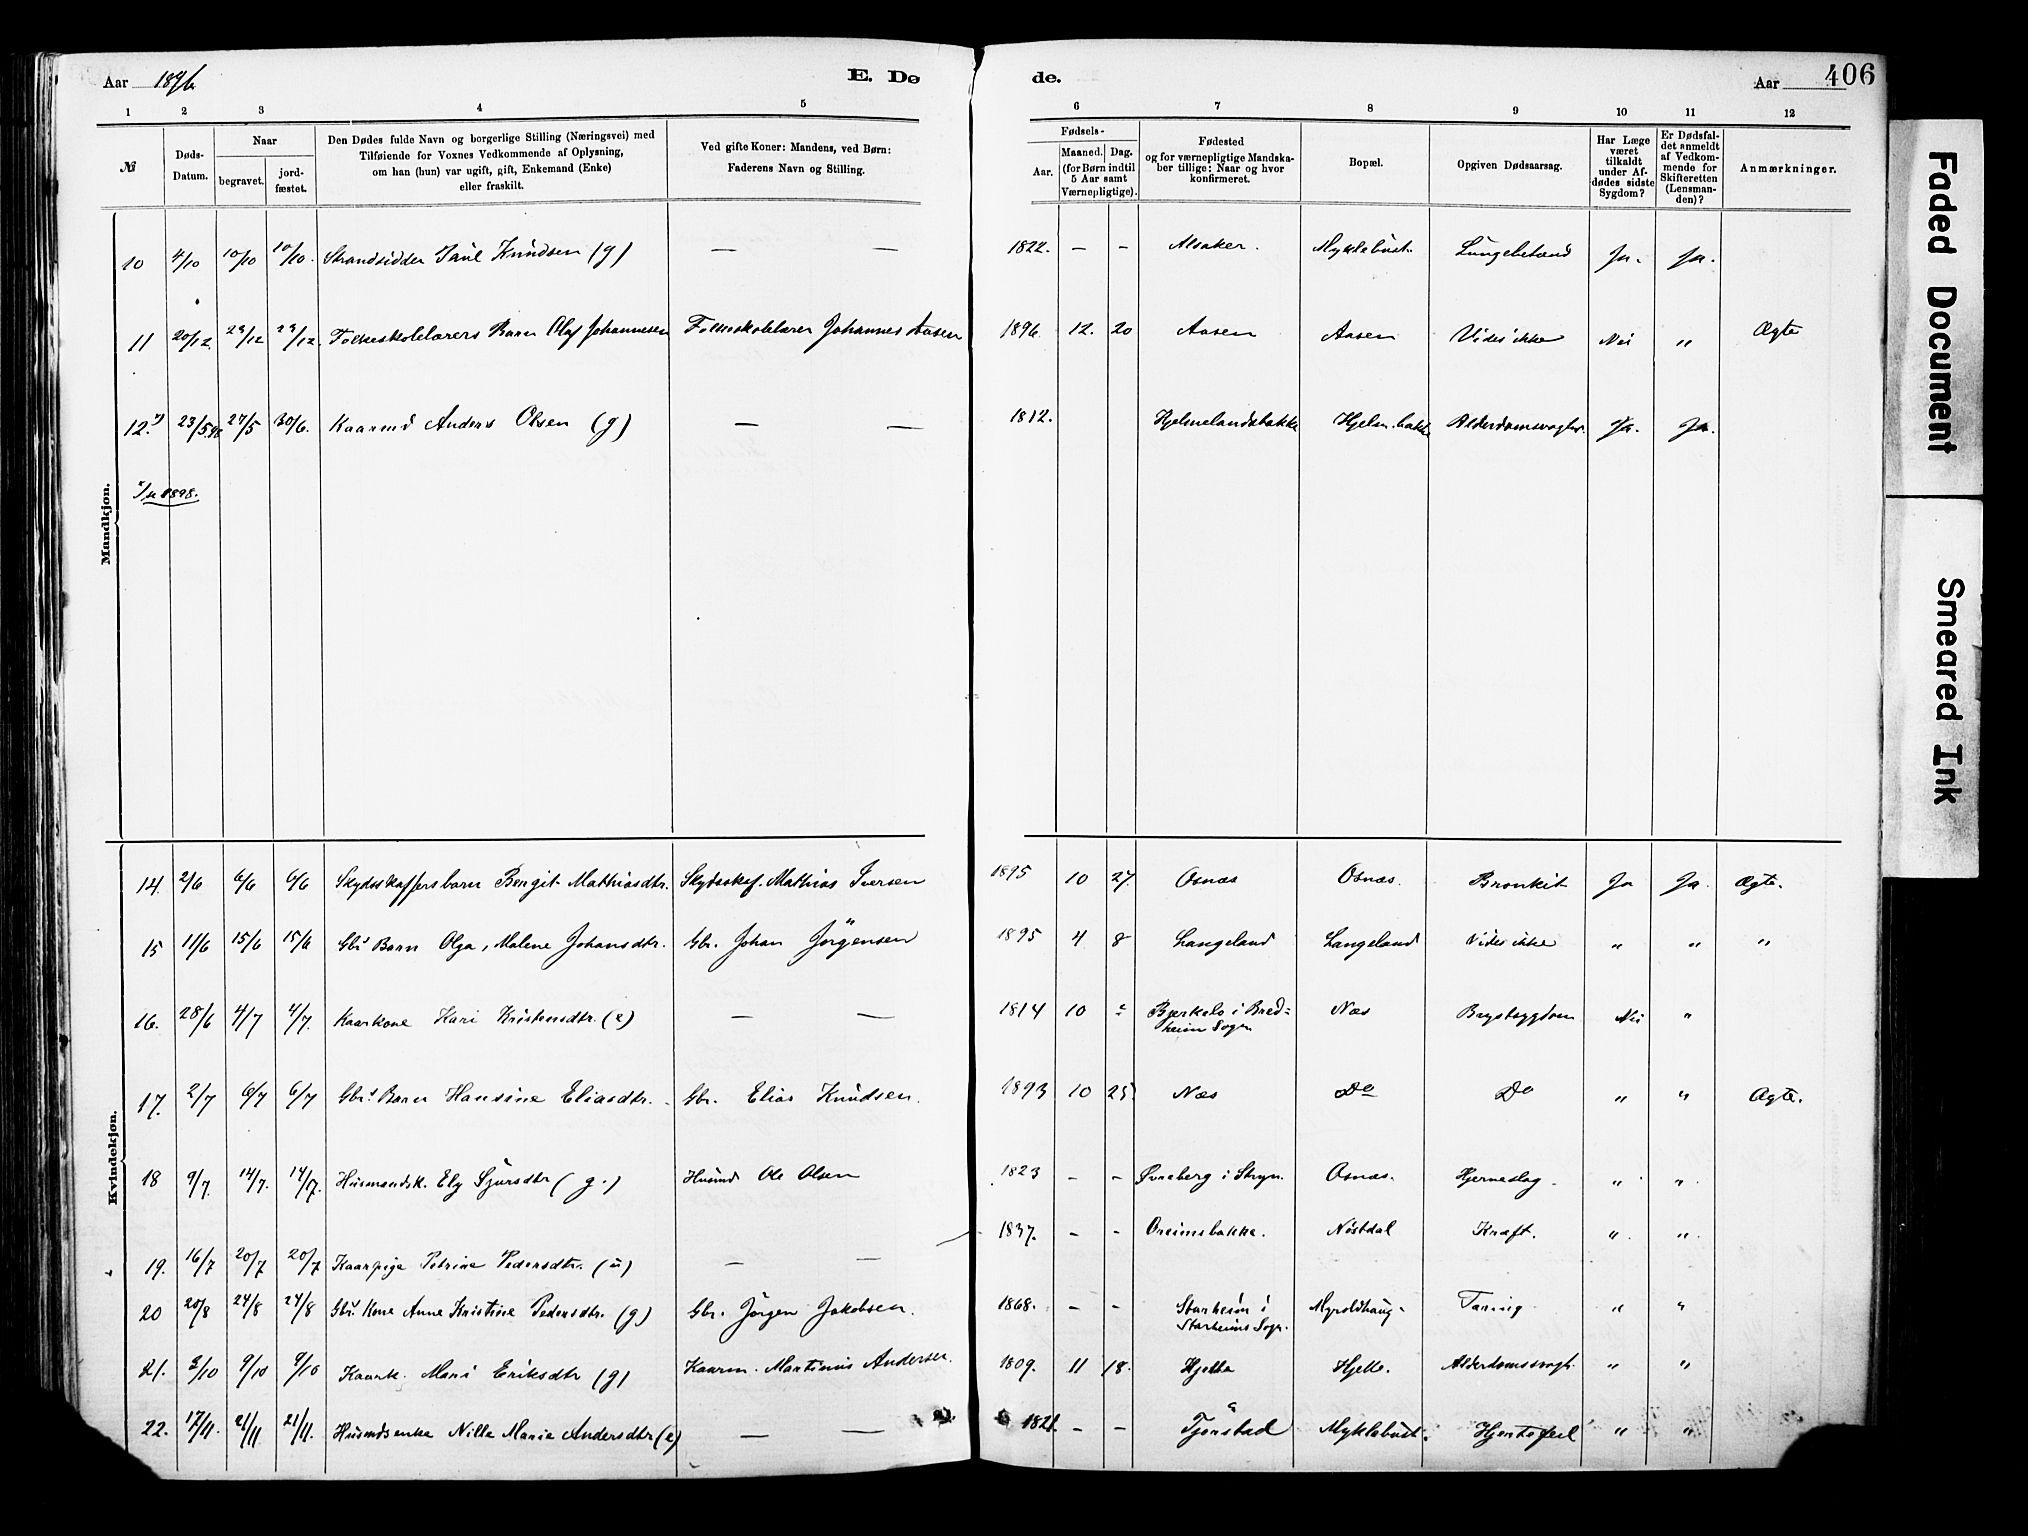 Aar 1896
E. Dø
de.
Aar
406
1 2 3 4 5 6 7 8 9 10 11 12
№
Døds-Datum.
Naar
begravet.
jord-fæstet.
Den Dødes fulde Navn og borgerlige Stilling (Næringsvei) med
Tilføiende for Voxnes Vedkommende af Oplysning,
om han (hun) var ugift, gift, Enkemand (Enke)
eller fraskilt.
Ved gifte Koner: Mandens, ved Børn:
Faderens Navn og Stilling.
Fødsels-
Aar.
Maaned. Dag.
(for Børn indtil
5 Aar samt
Værnepligtige).
Fødested
og for værnepligtige Mandska-
ber tillige: Naar og hvor
konfirmeret.
Bopæl.
Opgiven Dødsaarsag.
Har Læge
været
tilkaldt
under Af-
dødes sidste
Sygdom?
Er Dødsfal-
det anmeldt
af Vedkom-
mende for
Skifteretten
(Lensman-
den)?
Anmærkninger.
Mandkjøn.
10 4/10 10/10 10/10. Strandsidder Paul Knudsen (g) — — 1822. – – Alsaker. Myklebust. Lungebetænd Ja. Ja.
11 20/12 29/12 29/12. Folkeskolelærers Barn Olaf Johannesen Folkeskolelærer Johannes Aasen 1896 12. 20 Aasen Aasen Vides ikke Nei " Ægte
12. 23/5 98 27/5 30/6. Kaarmd Anders Olsen (g) — — 1812. Hjelmelandsbakke Hjelm.bakke Alderdomssvagh. Ja. Ja.
1898.
Kvindekjøn.
14. 2/6 6/6 6/6 Skydsskaffersbarn Bergit Mathiasdtr. Skydsskaf. Mathias Iversen 1895 10 27. Osnæs Osnæs. Bronkit Ja Ja. Ægte.
15 11/6 15/6 15/6 Gbr Barn Olga, Malene Johansdtr. Gbr. Johan Jörgensen 1895 4 8 Langeland Langeland Vides ikke " " "
16. 28/6 4/7 4/7. Kaarkone Kari Kristensdtr. (e) — — 1814 10 Bjerkelo i Bred=
heim Sogn Næs Brystsygdom Nei "
17. 2/7 6/7 6/7 Gbrs Barn Hansine Eliasdtr. Gbr. Elias Knudsen. 1893 10 25 Næs Do Do " " Ægte.
18 9/7. 14/7. 14/7. Husmandsk. Ely Sjursdtr (g.) Husmd Ole Olsen 1823 – – Øvreberg i Stryn. Osnæs. Hjerneslag. " "
19. 16/7 20/7 20/7 Kaarpige Petrine Pedersdtr. (u) — — 1837. – – Oreimsbakke. Nöstdal Kræft. " "
20 20/8 24/8 24/8 Gbr. Kone Anne Kristine Pedersdtr. (g) Gbr. Jörgen Jakobsen. 1868. – – Starheim i
Starheims Sogn. Myroldhaug Tæring " "
21. 3/10 9/10 9/10 Kaark. Mari Eriksdtr (g) Kaarm. Martinus Andersen. 1809. 11 18. Hjelle Hjelle. Alderdomssvagh. " "
22. 17/11. 21/11 21/11. Husmdsenke Nille Marie Andersdtr (e) — — 1821. – – Tjönstad Myklebust. Hjertefeil " "
Faded Document
Smeared Ink